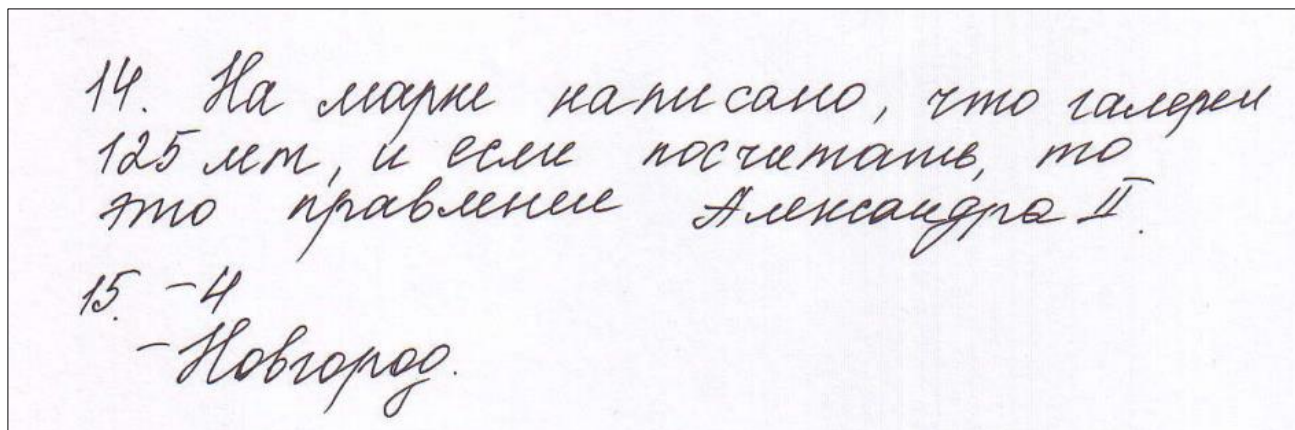 14. На марке написано, что галереи
125 лет, и если посчитать, то
это правление Александра II.
15. – 4
– Новгород.